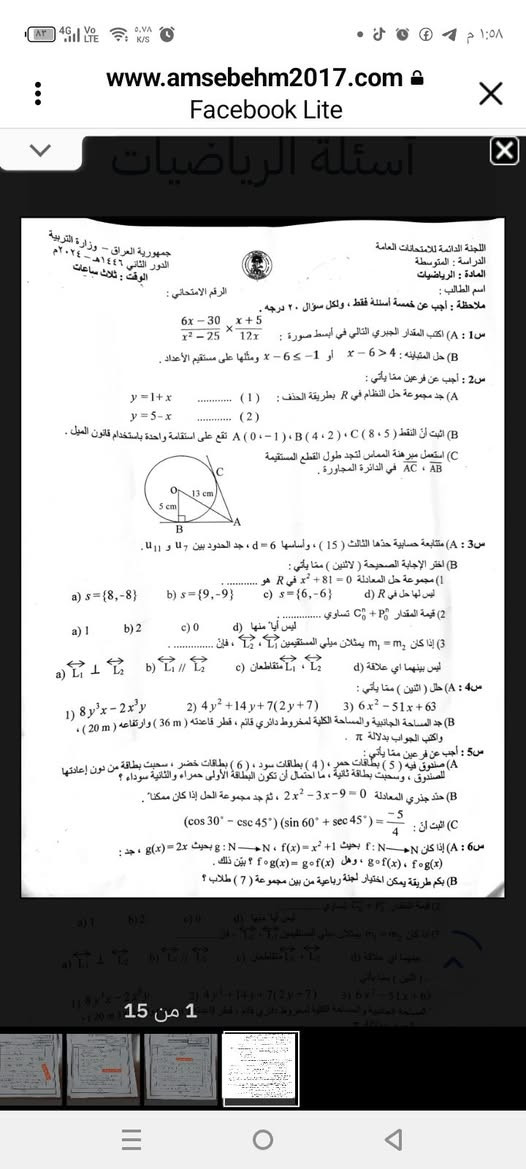 ١:٥٨ م
٥,٧٨ K/S
Vo LTE
4G
٨٣
www.amsebehm2017.com
Facebook Lite
أسئلة الرياضيات
اللجنة الدائمة للامتحانات العامة
الدراسة : المتوسطة
المادة : الرياضيات
اسم الطالب :
جمهورية العراق – وزارة التربية
الدور الثاني ١٤٤٦هـ – ٢٠٢٤م
الوقت : ثلاث ساعات
الرقم الامتحاني :
ملاحظة : أجب عن خمسة أسئلة فقط ، ولكل سؤال ٢٠ درجة .
س١ : A) اكتب المقدار الجبري التالي في أبسط صورة : (6x − 30)/(x² − 25) × (x + 5)/(12x)
B) حل المتباينة : x − 6 > 4 أو x − 6 ≤ −1 ومثلها على مستقيم الأعداد .
س٢ : أجب عن فرعين ممّا يأتي :
A) جد مجموعة حل النظام في R بطريقة الحذف : y = 1 + x ............ ( 1 )
y = 5 − x ............ ( 2 )
B) اثبت أنّ النقط A ( 0 ، −1 ) ، B ( 4 ، 2 ) ، C ( 8 ، 5 ) تقع على استقامة واحدة باستخدام قانون الميل .
C) استعمل مبرهنة المماس لتجد طول القطع المستقيمة
AB ، AC في الدائرة المجاورة .
C
O
13 cm
5 cm
B
A
س٣ : A) متتابعة حسابية حدّها الثالث ( 15 ) ، وأساسها d = 6 ، جد الحدود بين u₇ و u₁₁ .
B) اختر الإجابة الصحيحة ( لاثنين ) ممّا يأتي :
1) مجموعة حل المعادلة x² + 81 = 0 في R هو ............
a) s = {8, −8} b) s = {9, −9} c) s = {6, −6} d) ليس لها حل في R
2) قيمة المقدار C₀ⁿ + P₀ⁿ تساوي ............
a) 1 b) 2 c) 0 d) ليس أياً منها
3) إذا كان m₁ = m₂ يمثلان ميلي المستقيمين L₁ ، L₂ ، فإنّ ............
a) L₁ ⊥ L₂ b) L₁ // L₂ c) L₁ ، L₂ متقاطعان d) ليس بينهما اي علاقة
س٤ : A) حلل ( اثنين ) ممّا يأتي :
1) 8y³x − 2x³y 2) 4y² + 14y + 7(2y + 7) 3) 6x² − 51x + 63
B) جد المساحة الجانبية والمساحة الكلية لمخروط دائري قائم ، قطر قاعدته ( 36 m ) وارتفاعه ( 20 m ) ،
واكتب الجواب بدلالة π .
س٥ : أجب عن فرعين ممّا يأتي :
A) صندوق فيه ( 5 ) بطاقات حمر ، ( 4 ) بطاقات سود ، ( 6 ) بطاقات خضر ، سحبت بطاقة من دون إعادتها
للصندوق ، وسحبت بطاقة ثانية ، ما احتمال أن تكون البطاقة الأولى حمراء والثانية سوداء ؟
B) حدّد جذري المعادلة 2x² − 3x − 9 = 0 ، ثمّ جد مجموعة الحل إذا كان ممكناً .
C) اثبت أنّ : (cos 30° − csc 45°) (sin 60° + sec 45°) = −5/4
س٦ : A) إذا كان f : N → N بحيث f(x) = x² + 1 ، g : N → N بحيث g(x) = 2x ، جد :
f∘g(x) ، g∘f(x) ، وهل f∘g(x) = g∘f(x) ؟ بيّن ذلك .
B) بكم طريقة يمكن اختيار لجنة رباعية من بين مجموعة ( 7 ) طلاب ؟
1 من 15